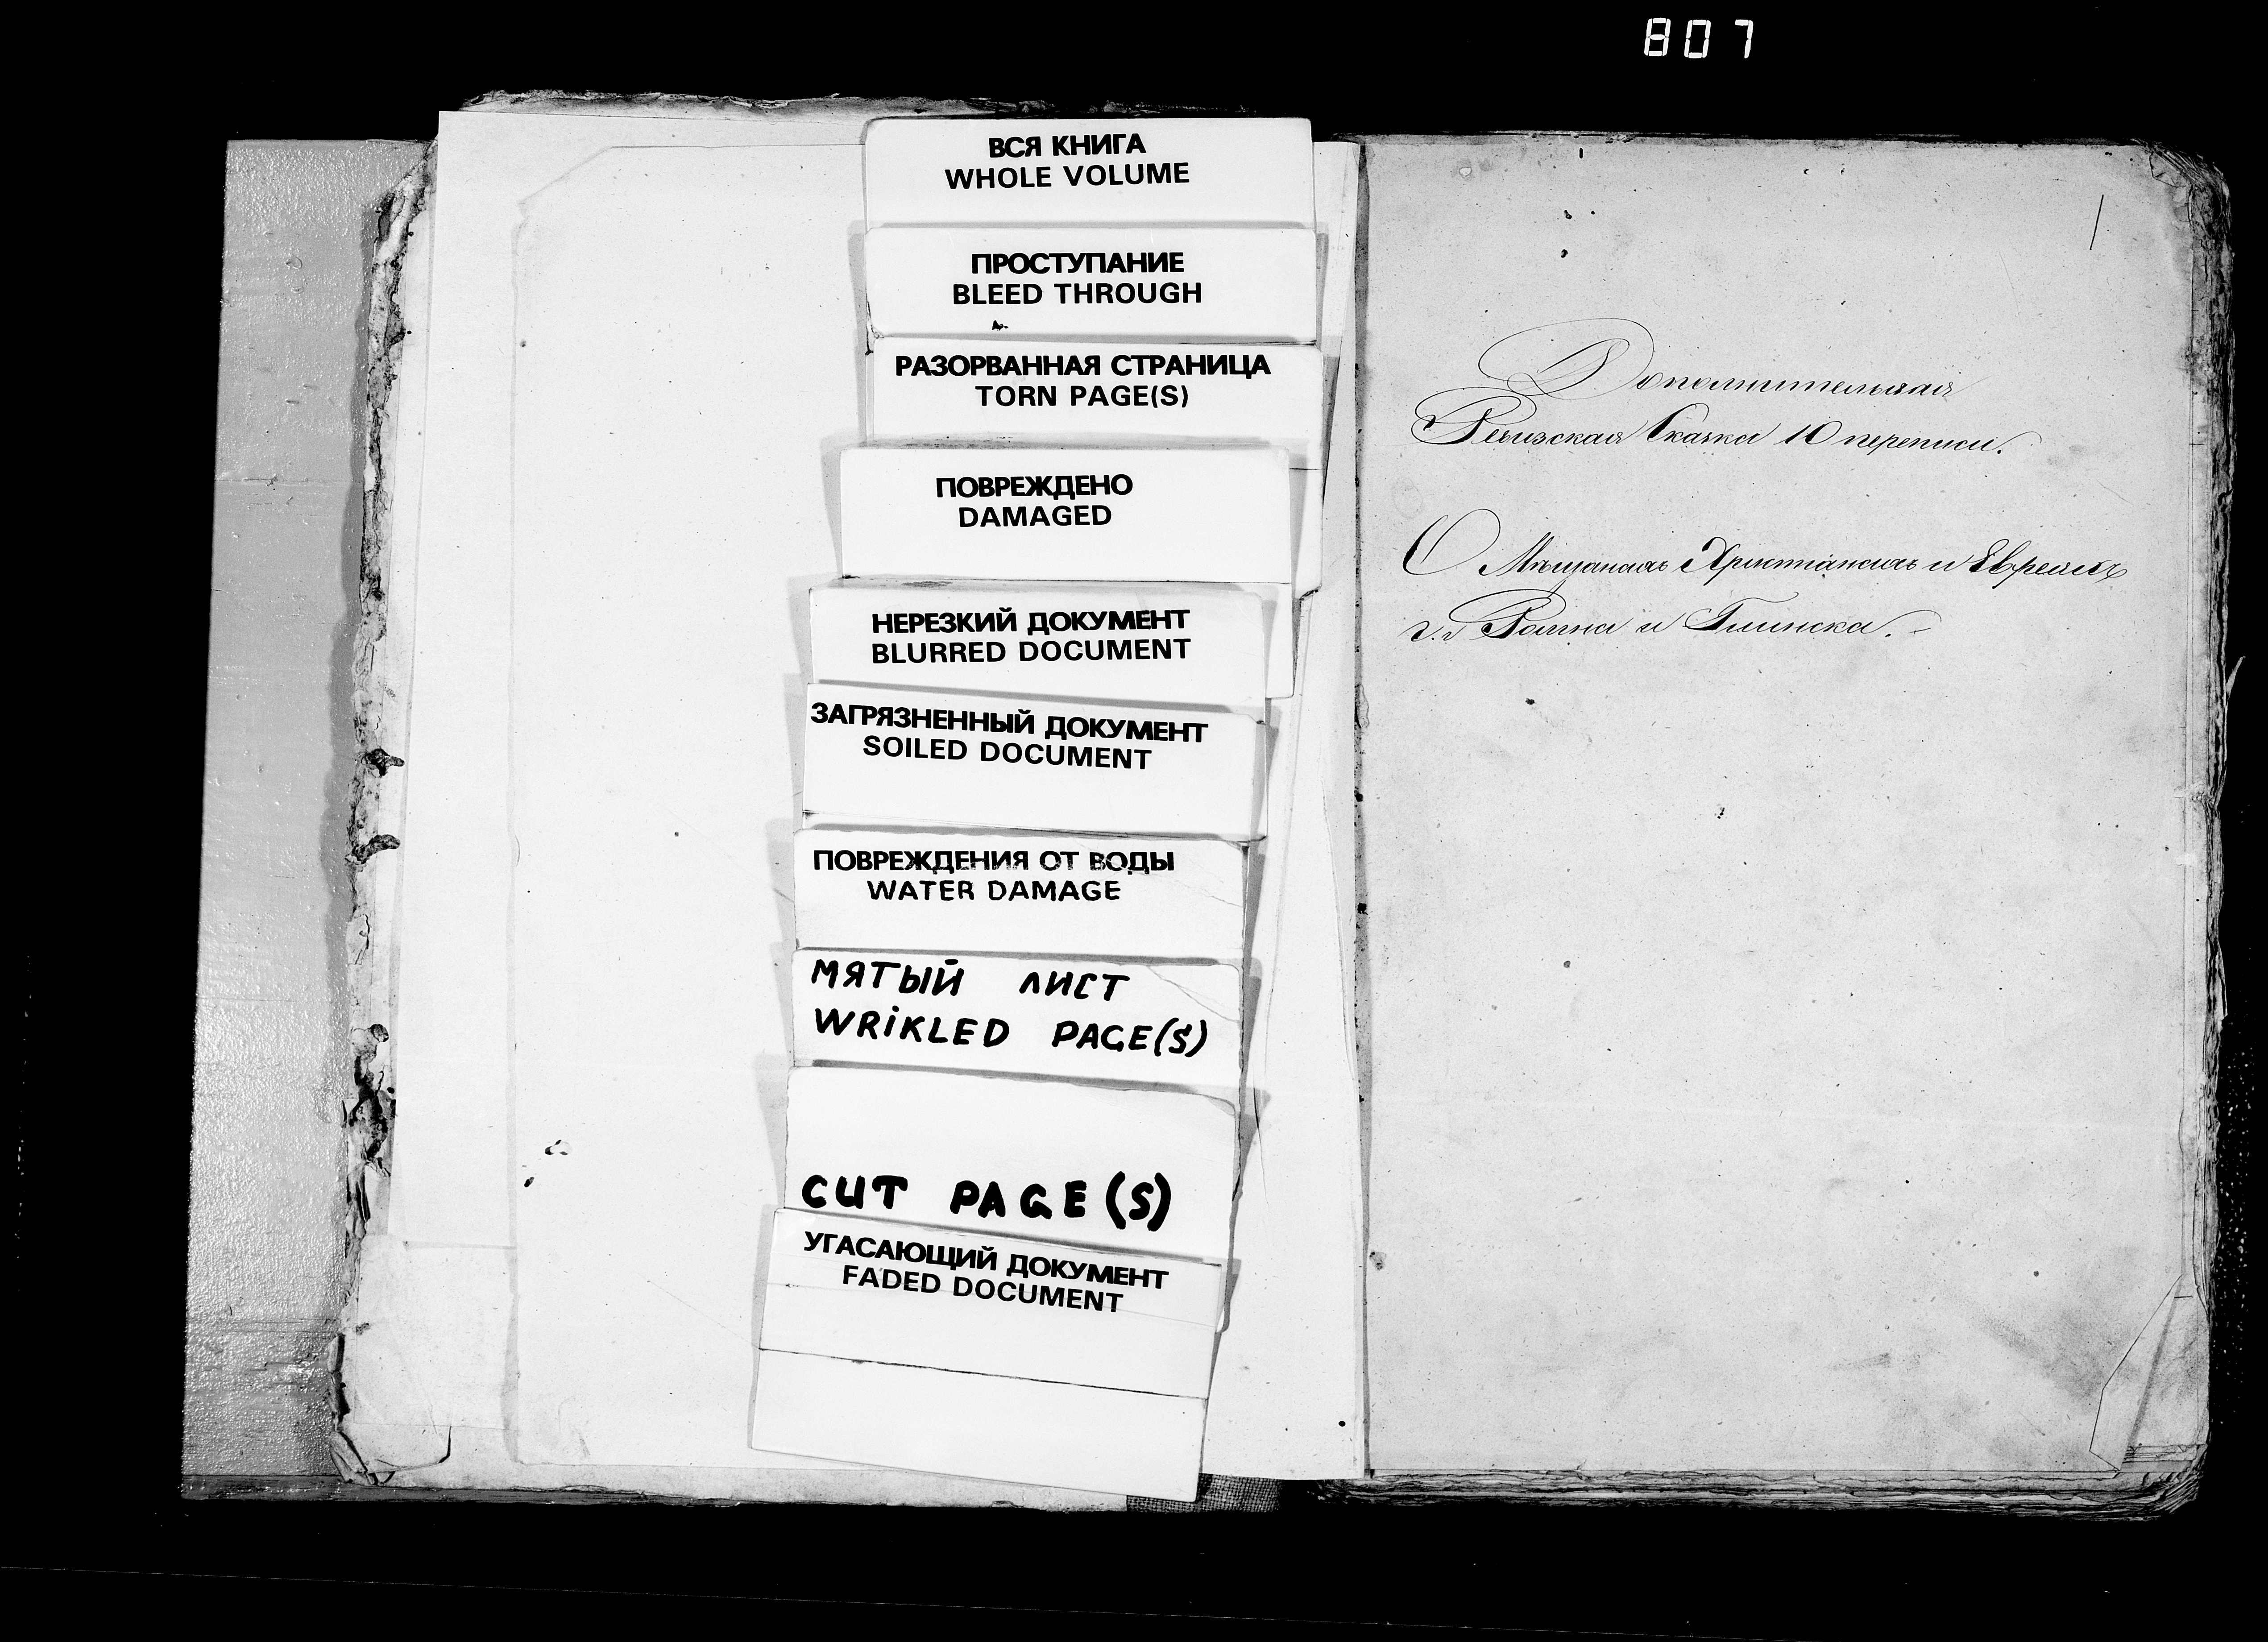 807
ВСЯ КНИГА
WHOLE VOLUME
ПРОСТУПАНИЕ
BLEED THROUGH
РАЗОРВАННАЯ СТРАНИЦА
TORN PAGE(S)
ПОВРЕЖДЕНО
DAMAGED
НЕРЕЗКИЙ ДОКУМЕНТ
BLURRED DOCUMENT
ЗАГРЯЗНЕННЫЙ ДОКУМЕНТ
SOILED DOCUMENT
ПОВРЕЖДЕНИЯ ОТ ВОДЫ
WATER DAMAGE
МЯТЫЙ ЛИСТ
WRIKLED PAGE(S)
CUT PAGE(S)
УГАСАЮЩИЙ ДОКУМЕНТ
FADED DOCUMENT
1
Дополнительная
Ревизская Сказка 10 переписи.
О Мѣщанахъ Христіанахъ и Евреяхъ
г.г. Ромна и Глинска.